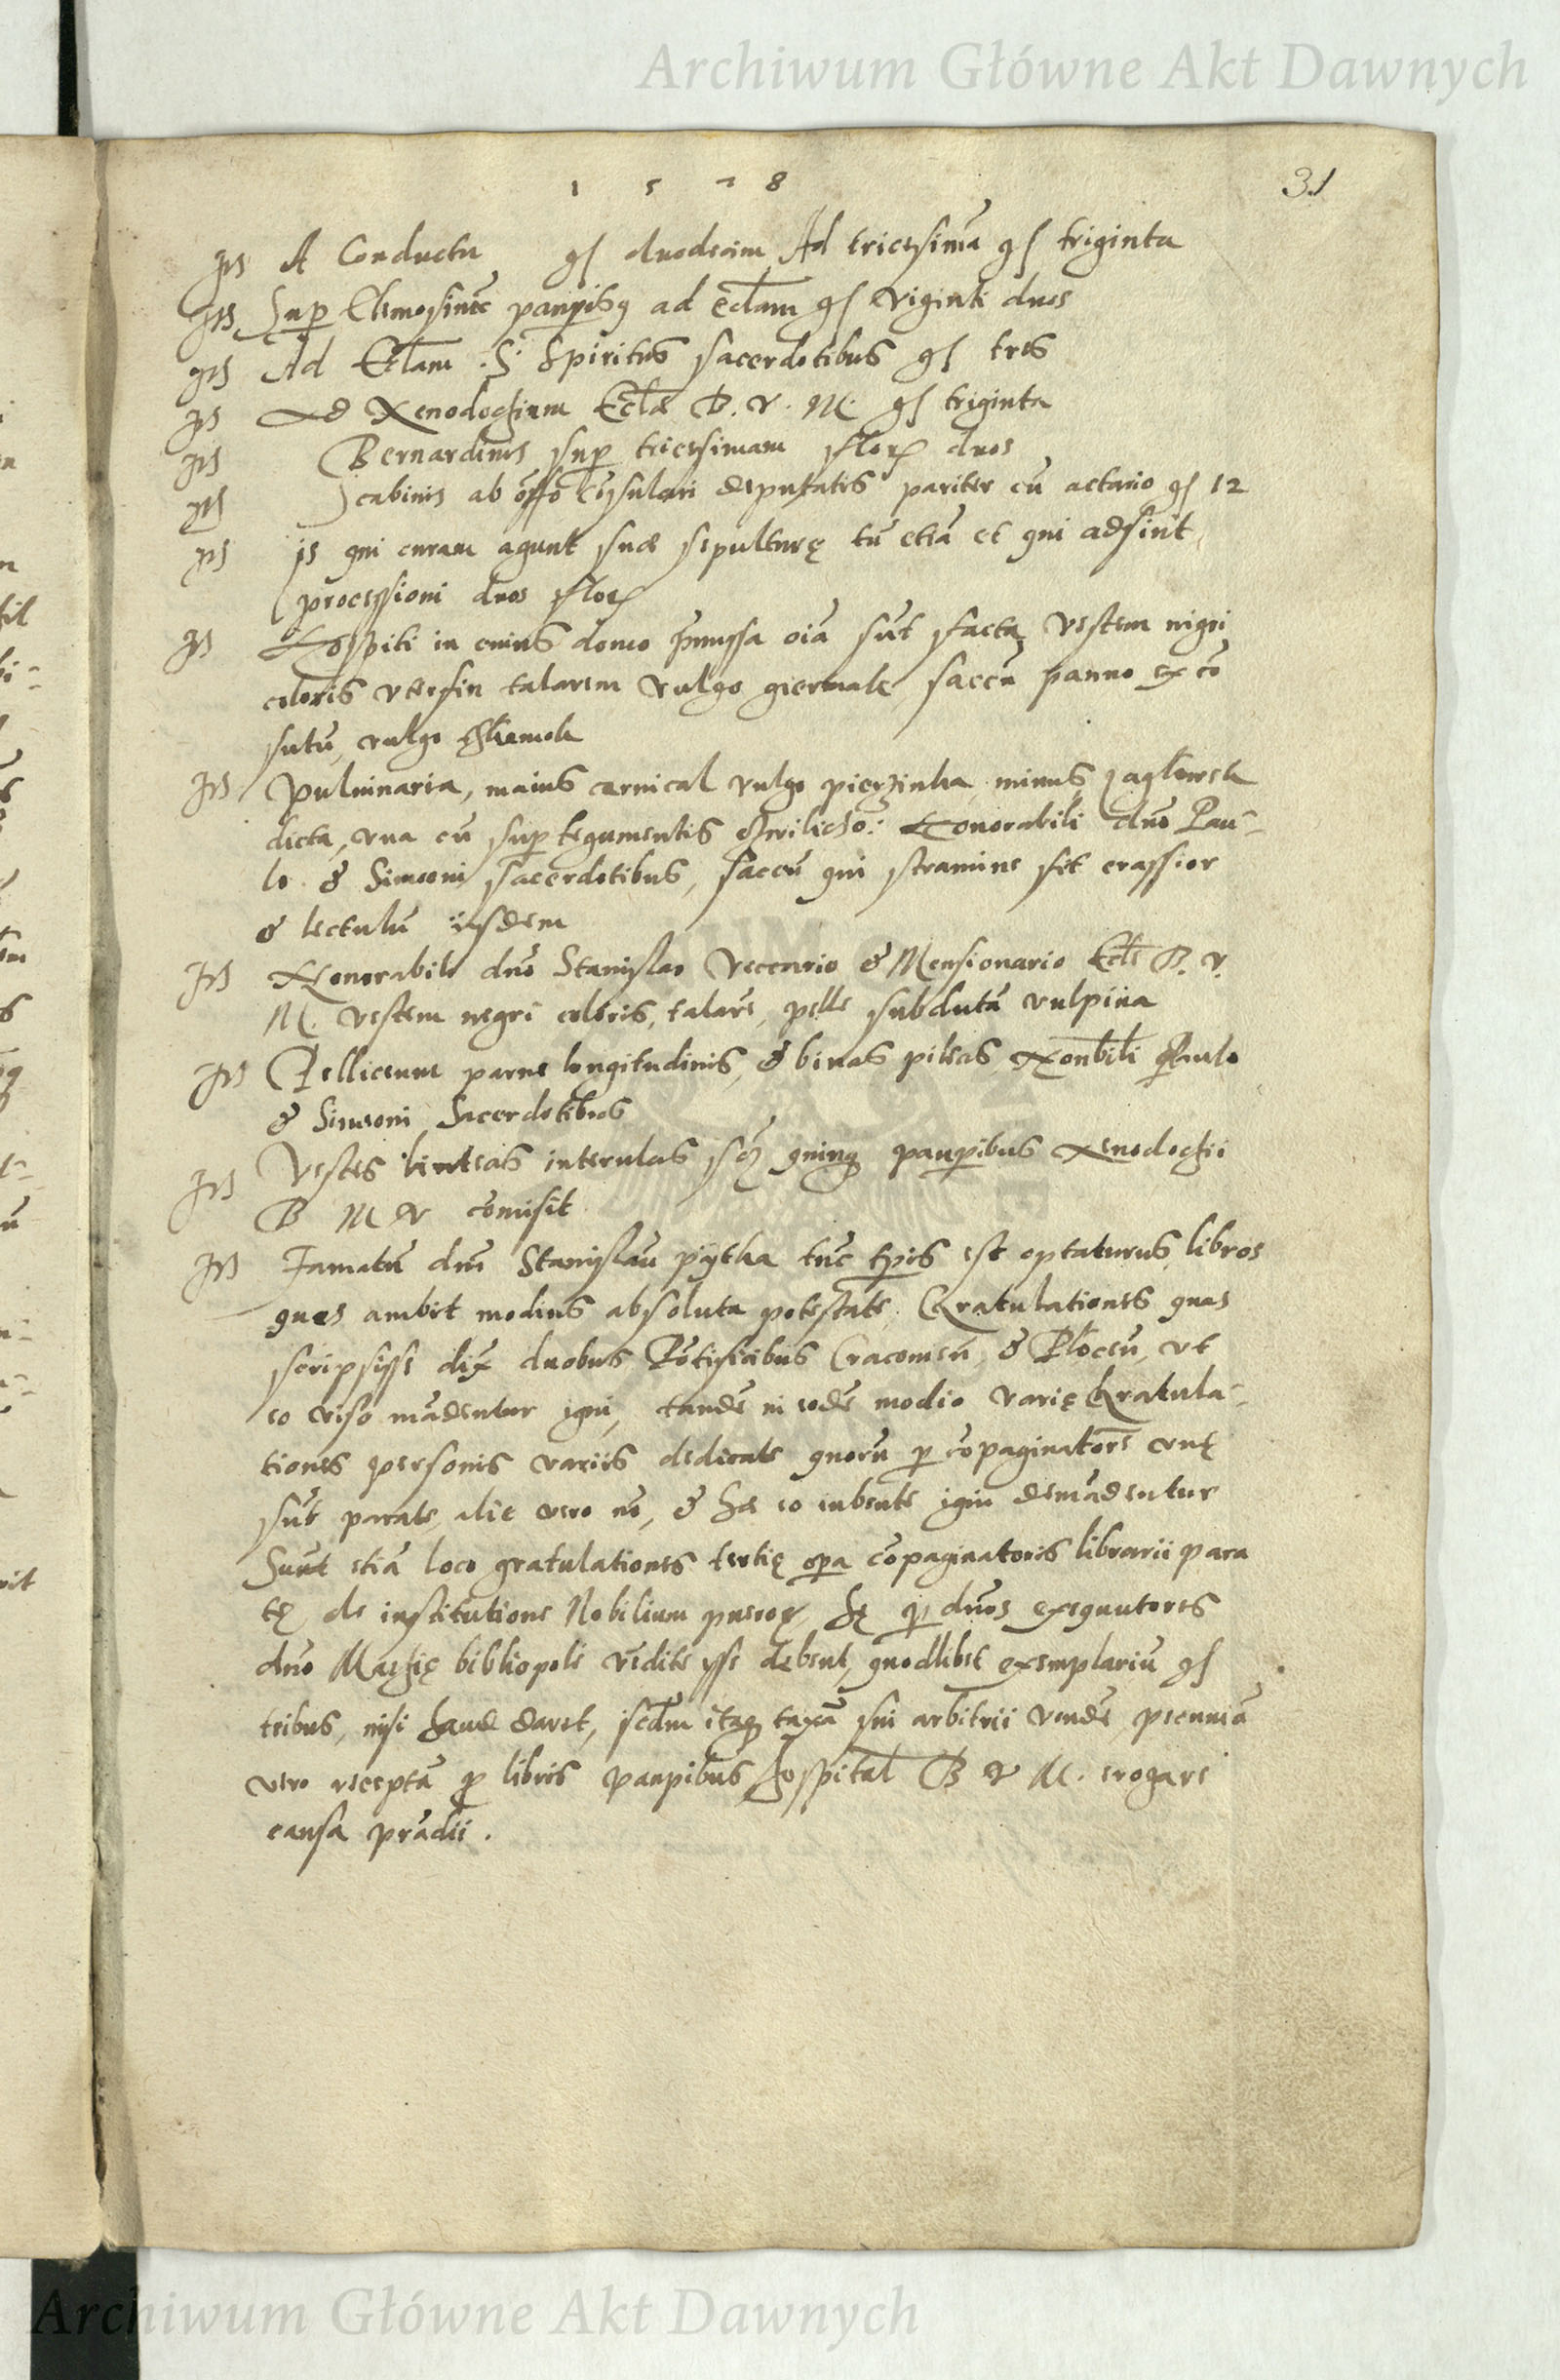 Archiwum Główne Akt Dawnych
1 5 7 8
31
Its A Conductu gs duodecim Ad tricesimā gs triginta
Its Sup Elemosinis paupibq ad eclam gs viginti duos
Its Ad Eclam S. Spiritus sacerdotibus gs tres
Its Ad Xenodochium Eclæ B. V. M. gs triginta
Its Bernardinis sup tricesimam flor duos
Its Scabinis ab offo cōsulari deputatis pariter cū actario gs 12
Its is qui curam agunt suæ sepulturę tū etiā et qui adsint
processioni duos flor
Its Hospiti in cuius domo pmissa oīa sūt facta, vestem nigri
coloris talarem vulgo giermak, saccū panno ex cō
sutū, vulgo
Its Puluinaria, maius ceruical vulgo pierzinka, minus zaglowek
dicta, vna cū suptegumentis Honorabili dnō Pau-
lo & Simeoni sacerdotibus, saccū qui stramine fit crassior
& lectulū iisdem
Its Honorabili dnō Stanislao & Mensionario Ecle B. V.
M. vestem negri coloris, talarē, pelle subdutā vulpina
Its Pelliceum parue longitudinis, & binas pileas Honbili Paulo
& Simeoni Sacerdotibus
Its Vestes linteas interulas scz quinq paupibus xenodochii
B M V comisit
Its Famatū dnm Stanislaū pytka tūc tpis est optaturus libros
quos ambit modius absoluta potestate. Gratulationes quas
scripsisse dix duobus Pōtificibus Cracouien, & Plocen, vt
eo viso mādentur igni, tandē in eodē modio varię Gratula-
tiones personis variis dedicate quorū p cōpaginatorē vnę
sūt parate, alie vero nō, & hæ eo iubente igni demādentur
Sunt etiā loco gratulationes tertię opa cōpaginatoris librarii para
tę, de institutione Nobilium pueror, hę p dnos exequutores
dno Mathię bibliopole vēdite esse debent, quodlibet exemplariū gs
tribus, nisi haud daret, scdm itaq taxā sui arbitrii vendē, pecuniā
vero receptā p libris paupibus hospital B V M. erogare
causa prādii.
Archiwum Główne Akt Dawnych